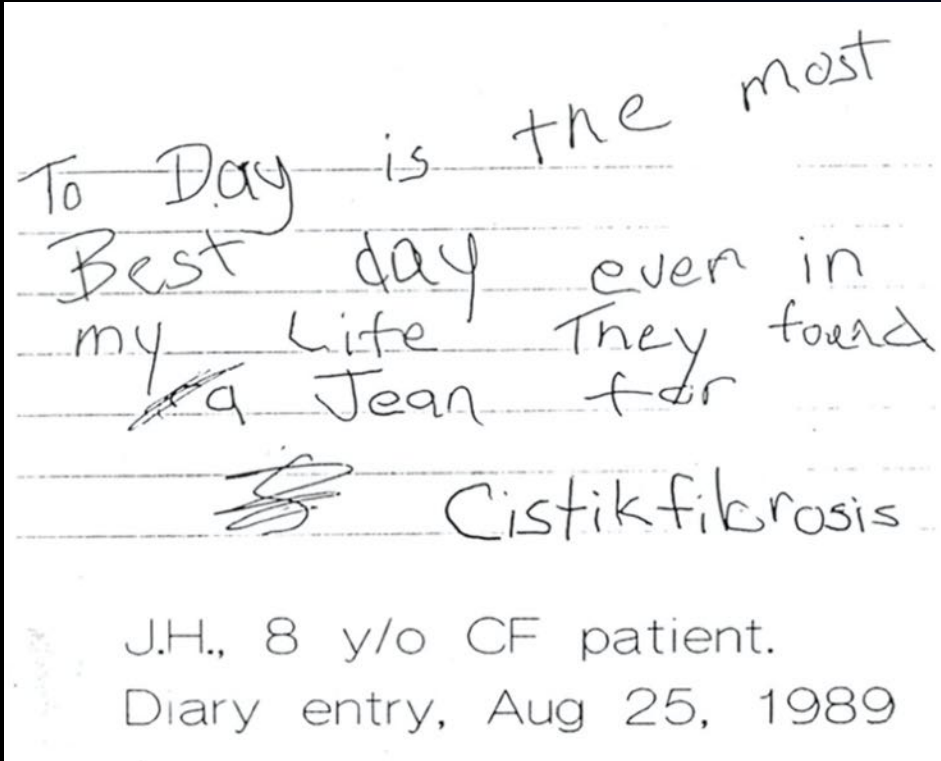 To Day is the most
Best day ever in
my Life They found
a Jean for
Cistikfibrosis
J.H., 8 y/o CF patient.
Diary entry, Aug 25, 1989